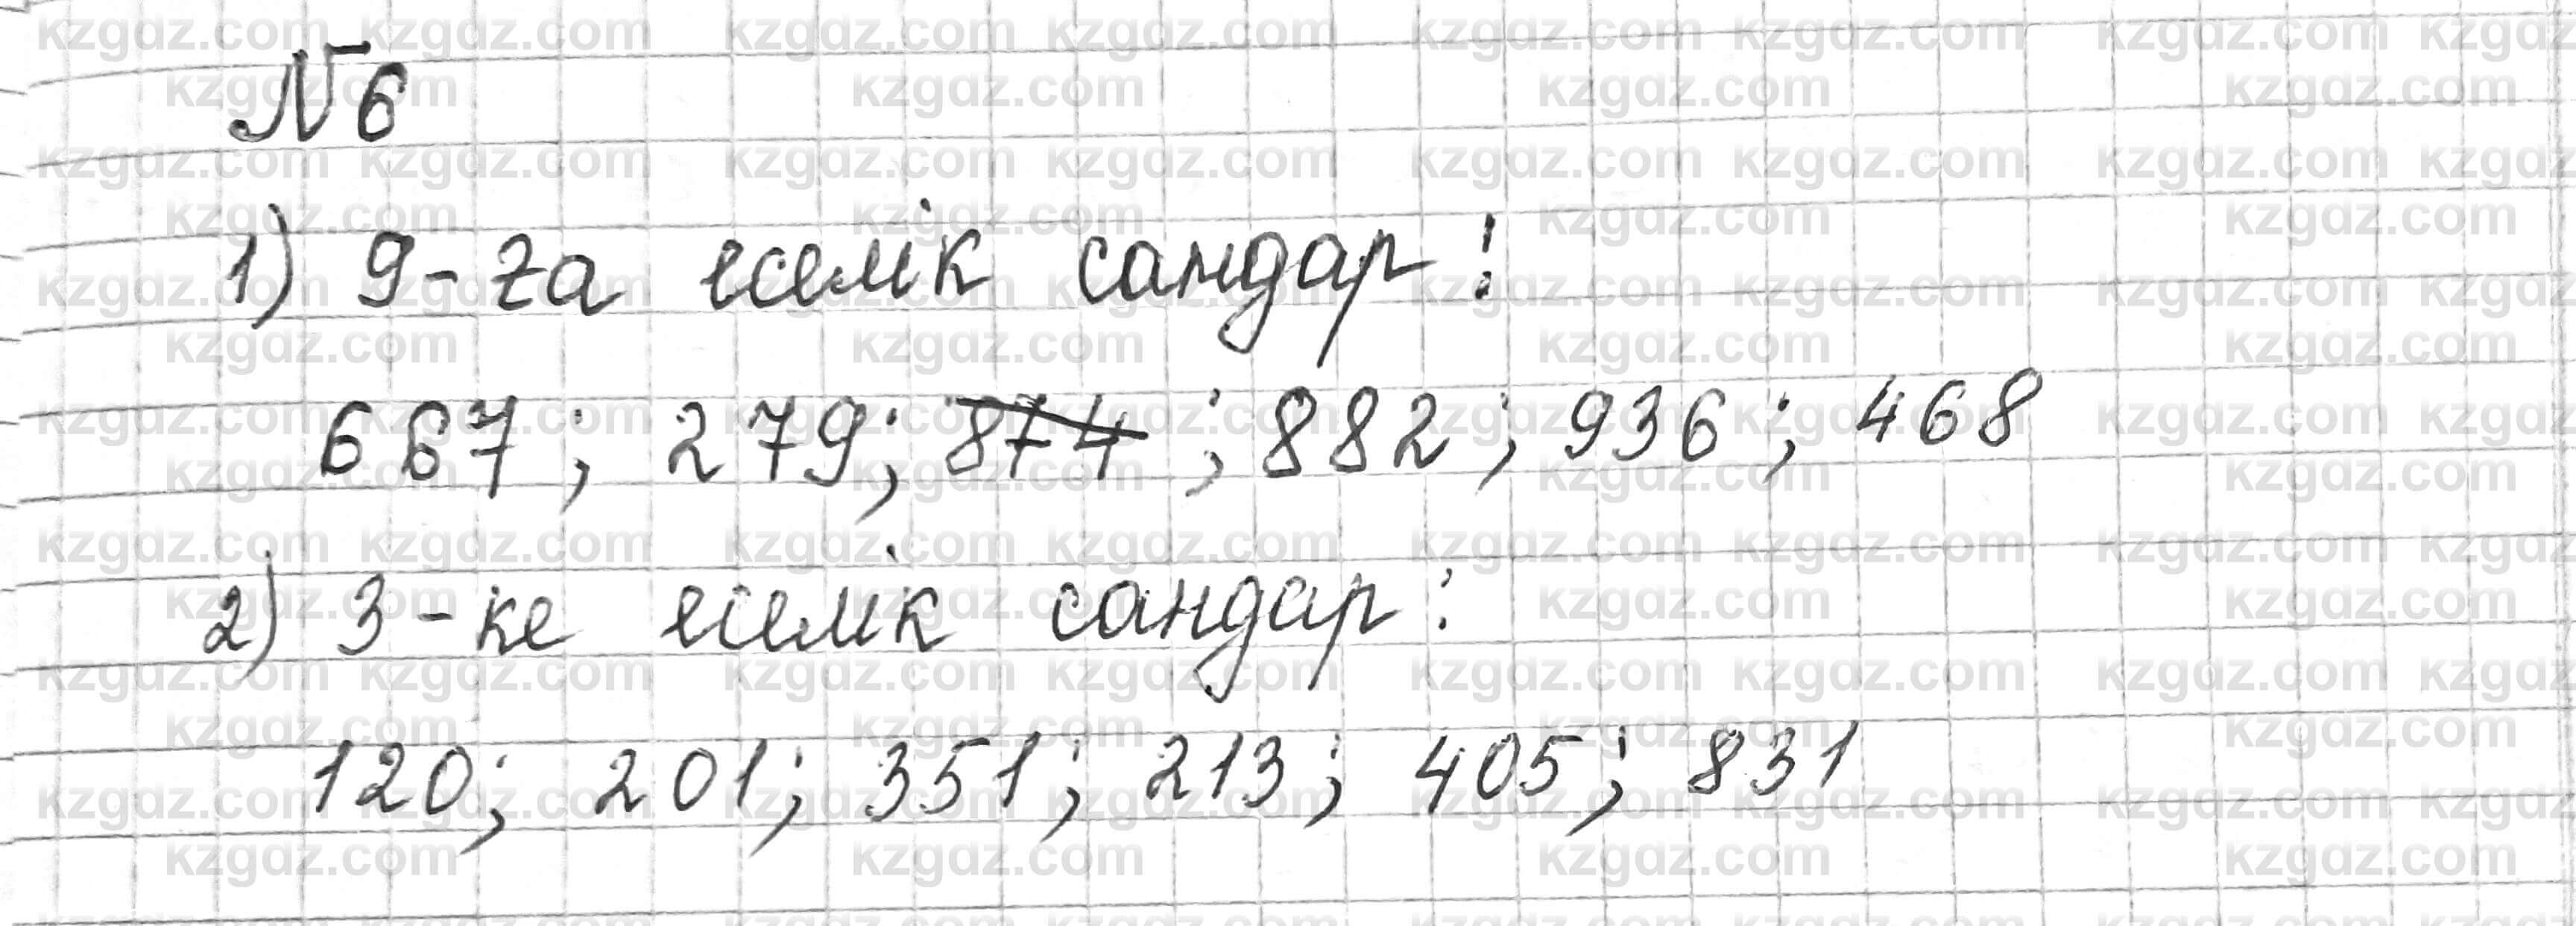 №6
1) 9-ға еселік сандар:
667; 279; 874; 882; 936; 468
2) 3-ке еселік сандар:
120; 201; 351; 213; 405; 831
kzgdz.com